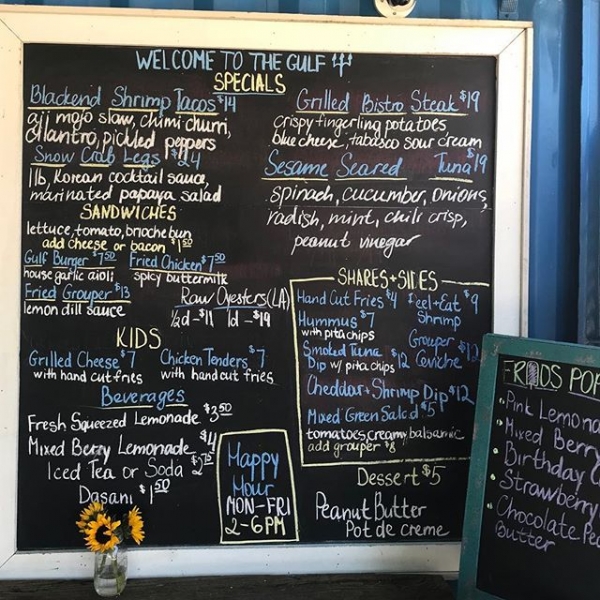 WELCOME TO THE GULF
SPECIALS
Blackend Shrimp Tacos $14
aji mojo slaw, chimi churri,
cilantro, pickled peppers
Snow Crab Legs
1lb, Korean cocktail sauce,
marinated papaya salad
Grilled Bistro Steak $19
crispy fingerling potatoes,
blue cheese, tabasco sour cream
Sesame Seared Tuna $19
spinach, cucumber, onions,
radish, mint, chili crisp,
peanut vinegar
SANDWICHES
lettuce, tomato, brioche bun
add cheese or bacon $1.50
Gulf Burger $7.50
house garlic aioli
Fried Chicken $7.50
spicy buttermilk
Fried Grouper $13
lemon dill sauce
Raw Oysters (LA)
1/2d - $11 1d - $19
KIDS
Grilled Cheese $7
with hand cut fries
Chicken Tenders $7
with hand cut fries
Beverages
Fresh Squeezed Lemonade $3.50
Mixed Berry Lemonade $4
Iced Tea or Soda
Dasani $1.50
Happy
Hour
MON-FRI
2-6PM
SHARES + SIDES
Hand Cut Fries $4
Hummus $7
with pita chips
Smoked Tuna
Dip w/ pita chips $12
Peel+Eat $9
Shrimp
Grouper
Ceviche $12
Cheddar + Shrimp Dip $12
Mixed Green Salad $5
tomatoes, creamy balsamic
add grouper $8
Dessert $5
Peanut Butter
Pot de creme
FRODS POP
Pink Lemona
Mixed Berry
Birthday
Strawberry
Chocolate Pea
Butter